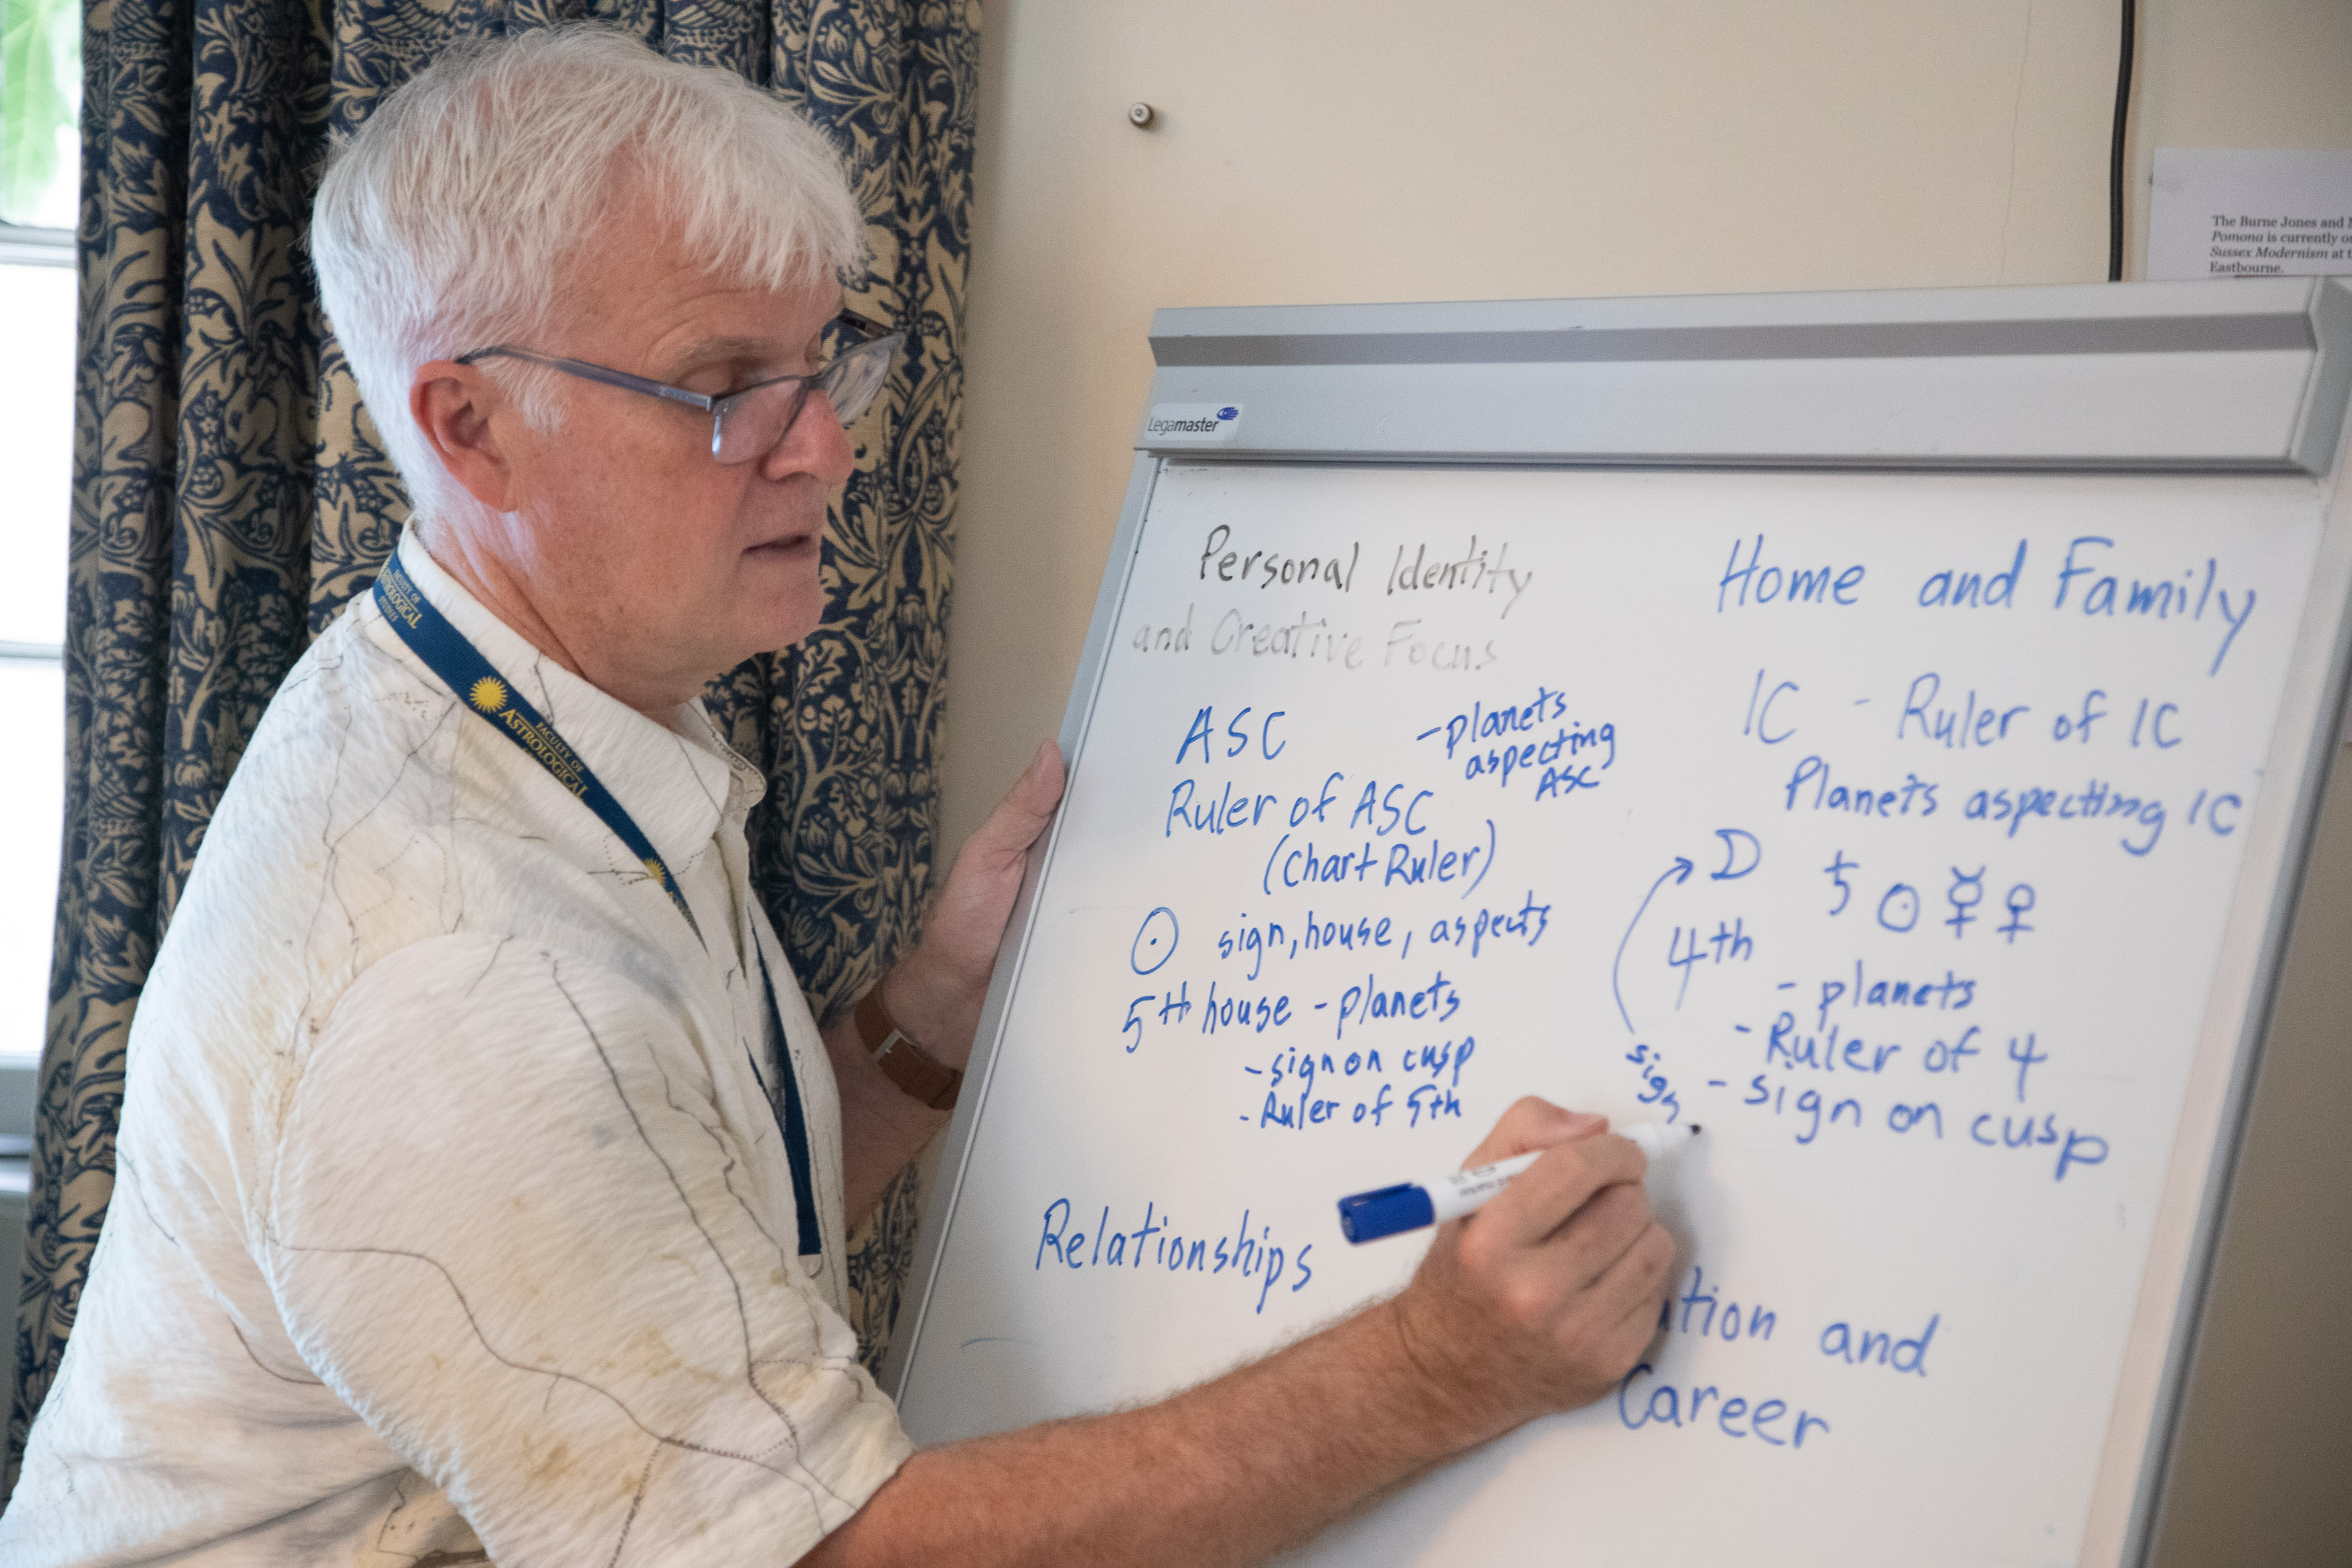 The Burne Jones and
Pomona is currently
Sussex Modernism at
Eastbourne.
Legamaster
FACULTY OF
ASTROLOGICAL
STUDIES
FACULTY OF
ASTROLOGICAL
Personal Identity
and Creative Focus
ASC
- planets
aspecting
ASC
Ruler of ASC
(Chart Ruler)
☉ sign, house, aspects
5th house - planets
- sign on cusp
- Ruler of 5th
Relationships
Home and Family
IC - Ruler of IC
Planets aspecting IC
☽ ♄ ☉ ☿ ♀
4th
- planets
- Ruler of 4
- sign on cusp
sign
and
Career